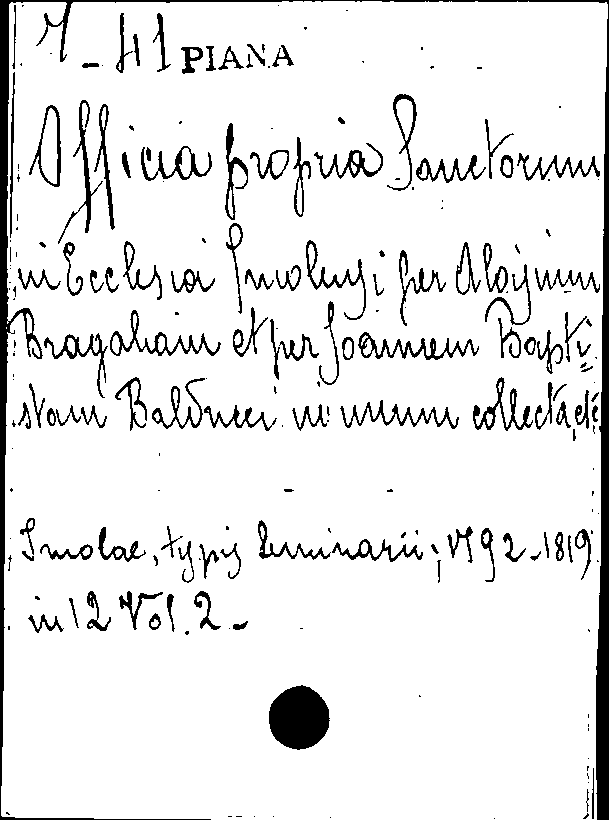 7-41 PIANA
Officia propria Sanctorum
in Ecclesia Imolensi per Aloysium
et per Joannem Bapti=
stam Balducci in unum collecta, etc
Imolae, typis Seminarii; 1792-1819
in 12 Vol. 2-